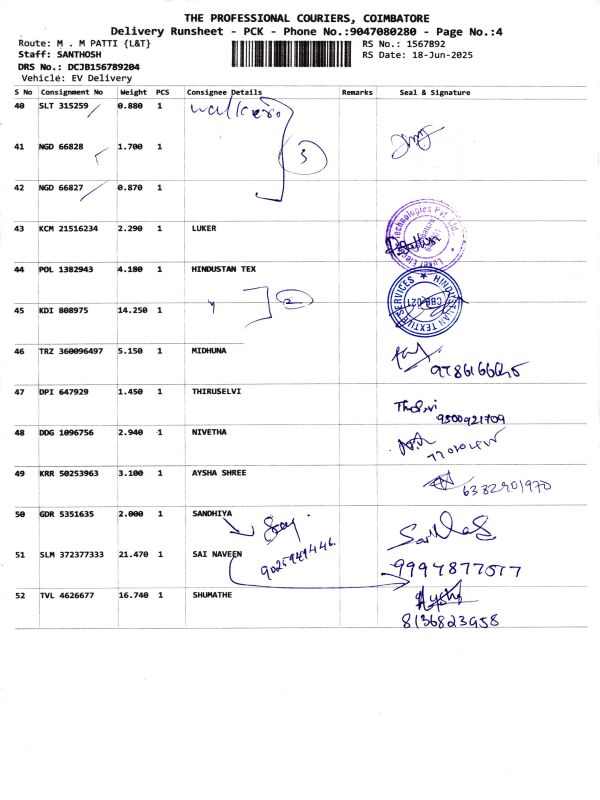 THE PROFESSIONAL COURIERS, COIMBATORE
Delivery Runsheet - PCK - Phone No.:9047080280 - Page No.:4
Route: M . M PATTI {L&T} RS No.: 1567892
Staff: SANTHOSH RS Date: 18-Jun-2025
DRS No.: DCJB156789204
Vehicle: EV Delivery
S No Consignment No Weight PCS Consignee Details Remarks Seal & Signature
40 SLT 315259 0.880 1
41 NGD 66828 1.700 1 3
42 NGD 66827 0.870 1
43 KCM 21516234 2.290 1 LUKER
44 POL 1382943 4.180 1 HINDUSTAN TEX
HINDUSTAN TEXTIVE SERVICES
CBE-021
45 KDI 808975 14.250 1 2
46 TRZ 360096497 5.150 1 MIDHUNA
47 DPI 647929 1.450 1 THIRUSELVI
9500921709
48 DDG 1096756 2.940 1 NIVETHA
49 KRR 50253963 3.100 1 AYSHA SHREE
6382901970
50 GDR 5351635 2.000 1 SANDHIYA
51 SLM 372377333 21.470 1 SAI NAVEEN
52 TVL 4626677 16.740 1 SHUMATHE
8136823958